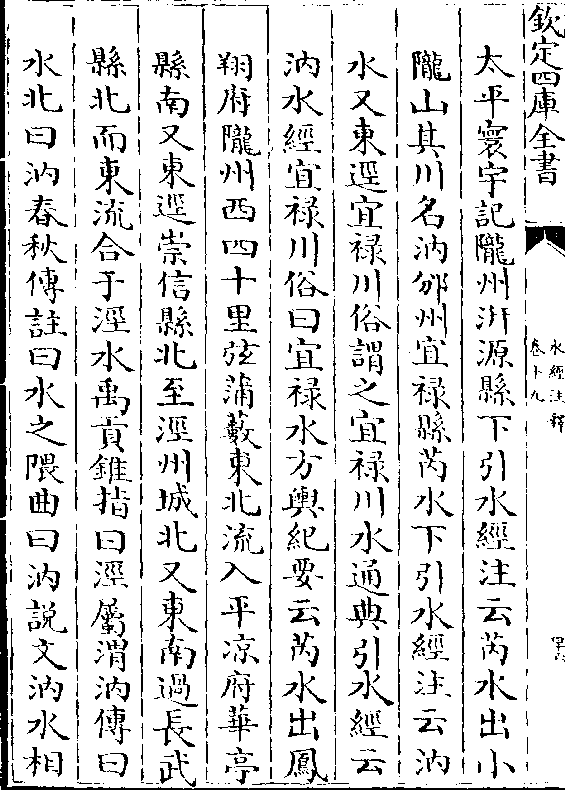 欽定四庫全書
水經注釋
卷十九
太平寰宇記隴州汧源縣下引水經注云芮水出小
隴山其川名汭邠州宜祿縣芮水下引水經注云汭
水又東逕宜祿川俗謂之宜祿川水通典引水經云
汭水經宜祿川俗曰宜祿水方輿紀要云芮水出鳳
翔府隴州西四十里弦蒲藪東北流入平凉府華亭
縣南又東逕崇信縣北至涇州城北又東南過長武
縣北而東流合于涇水禹貢錐指曰涇屬渭汭傳曰
水北曰汭春秋傳註曰水之隈曲曰汭說文汭水相